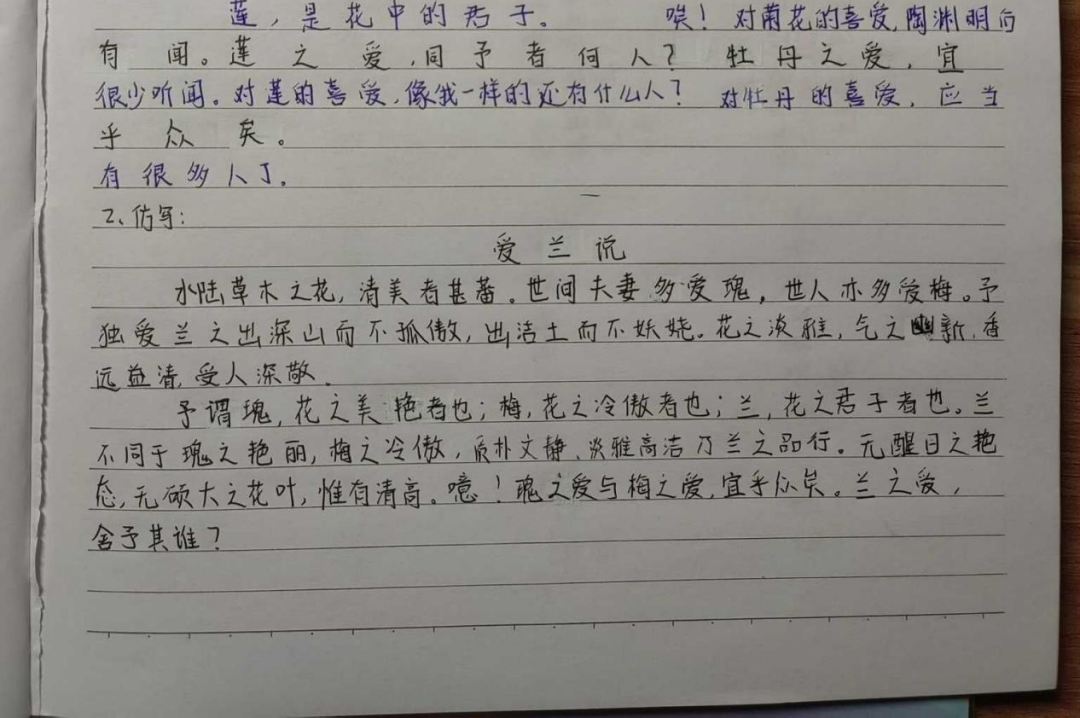 莲，是花中的君子。 唉！对菊花的喜爱,陶渊明后
有闻。莲之爱,同予者何人？牡丹之爱，宜
很少听闻。对莲的喜爱,像我一样的还有什么人？对牡丹的喜爱，应当
乎众矣。
有很多人了。
2、仿写：
爱兰说
水陆草木之花，清美者甚蕃。世间夫妻多爱瑰，世人亦多爱梅。予
独爱兰之出深山而不孤傲，出洁土而不妖娆。花之淡雅，气之幽新,香
远益清,受人深敬.
予谓瑰，花之美艳者也；梅，花之冷傲者也；兰，花之君子者也。兰
不同于瑰之艳丽，梅之冷傲，质朴文静、淡雅高洁乃兰之品行。无醒目之艳
态，无硕大之花叶，惟有清高。噫！瑰之爱与梅之爱,宜乎众矣。兰之爱，
舍予其谁？